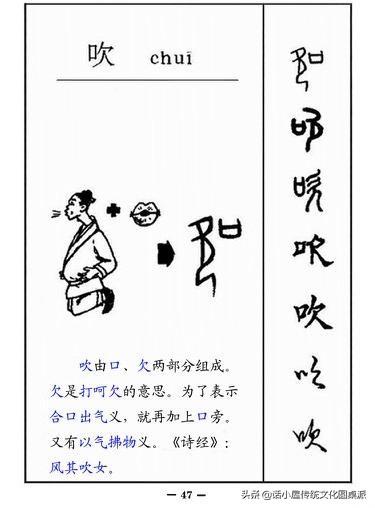 吹 chuī
吹由口、欠两部分组成。
欠是打呵欠的意思。为了表示
合口出气义，就再加上口旁。
又有以气拂物义。《诗经》：
风其吹女。
吹
吹
吹
— 47 —
头条 @诺小屋传统文化圆桌派